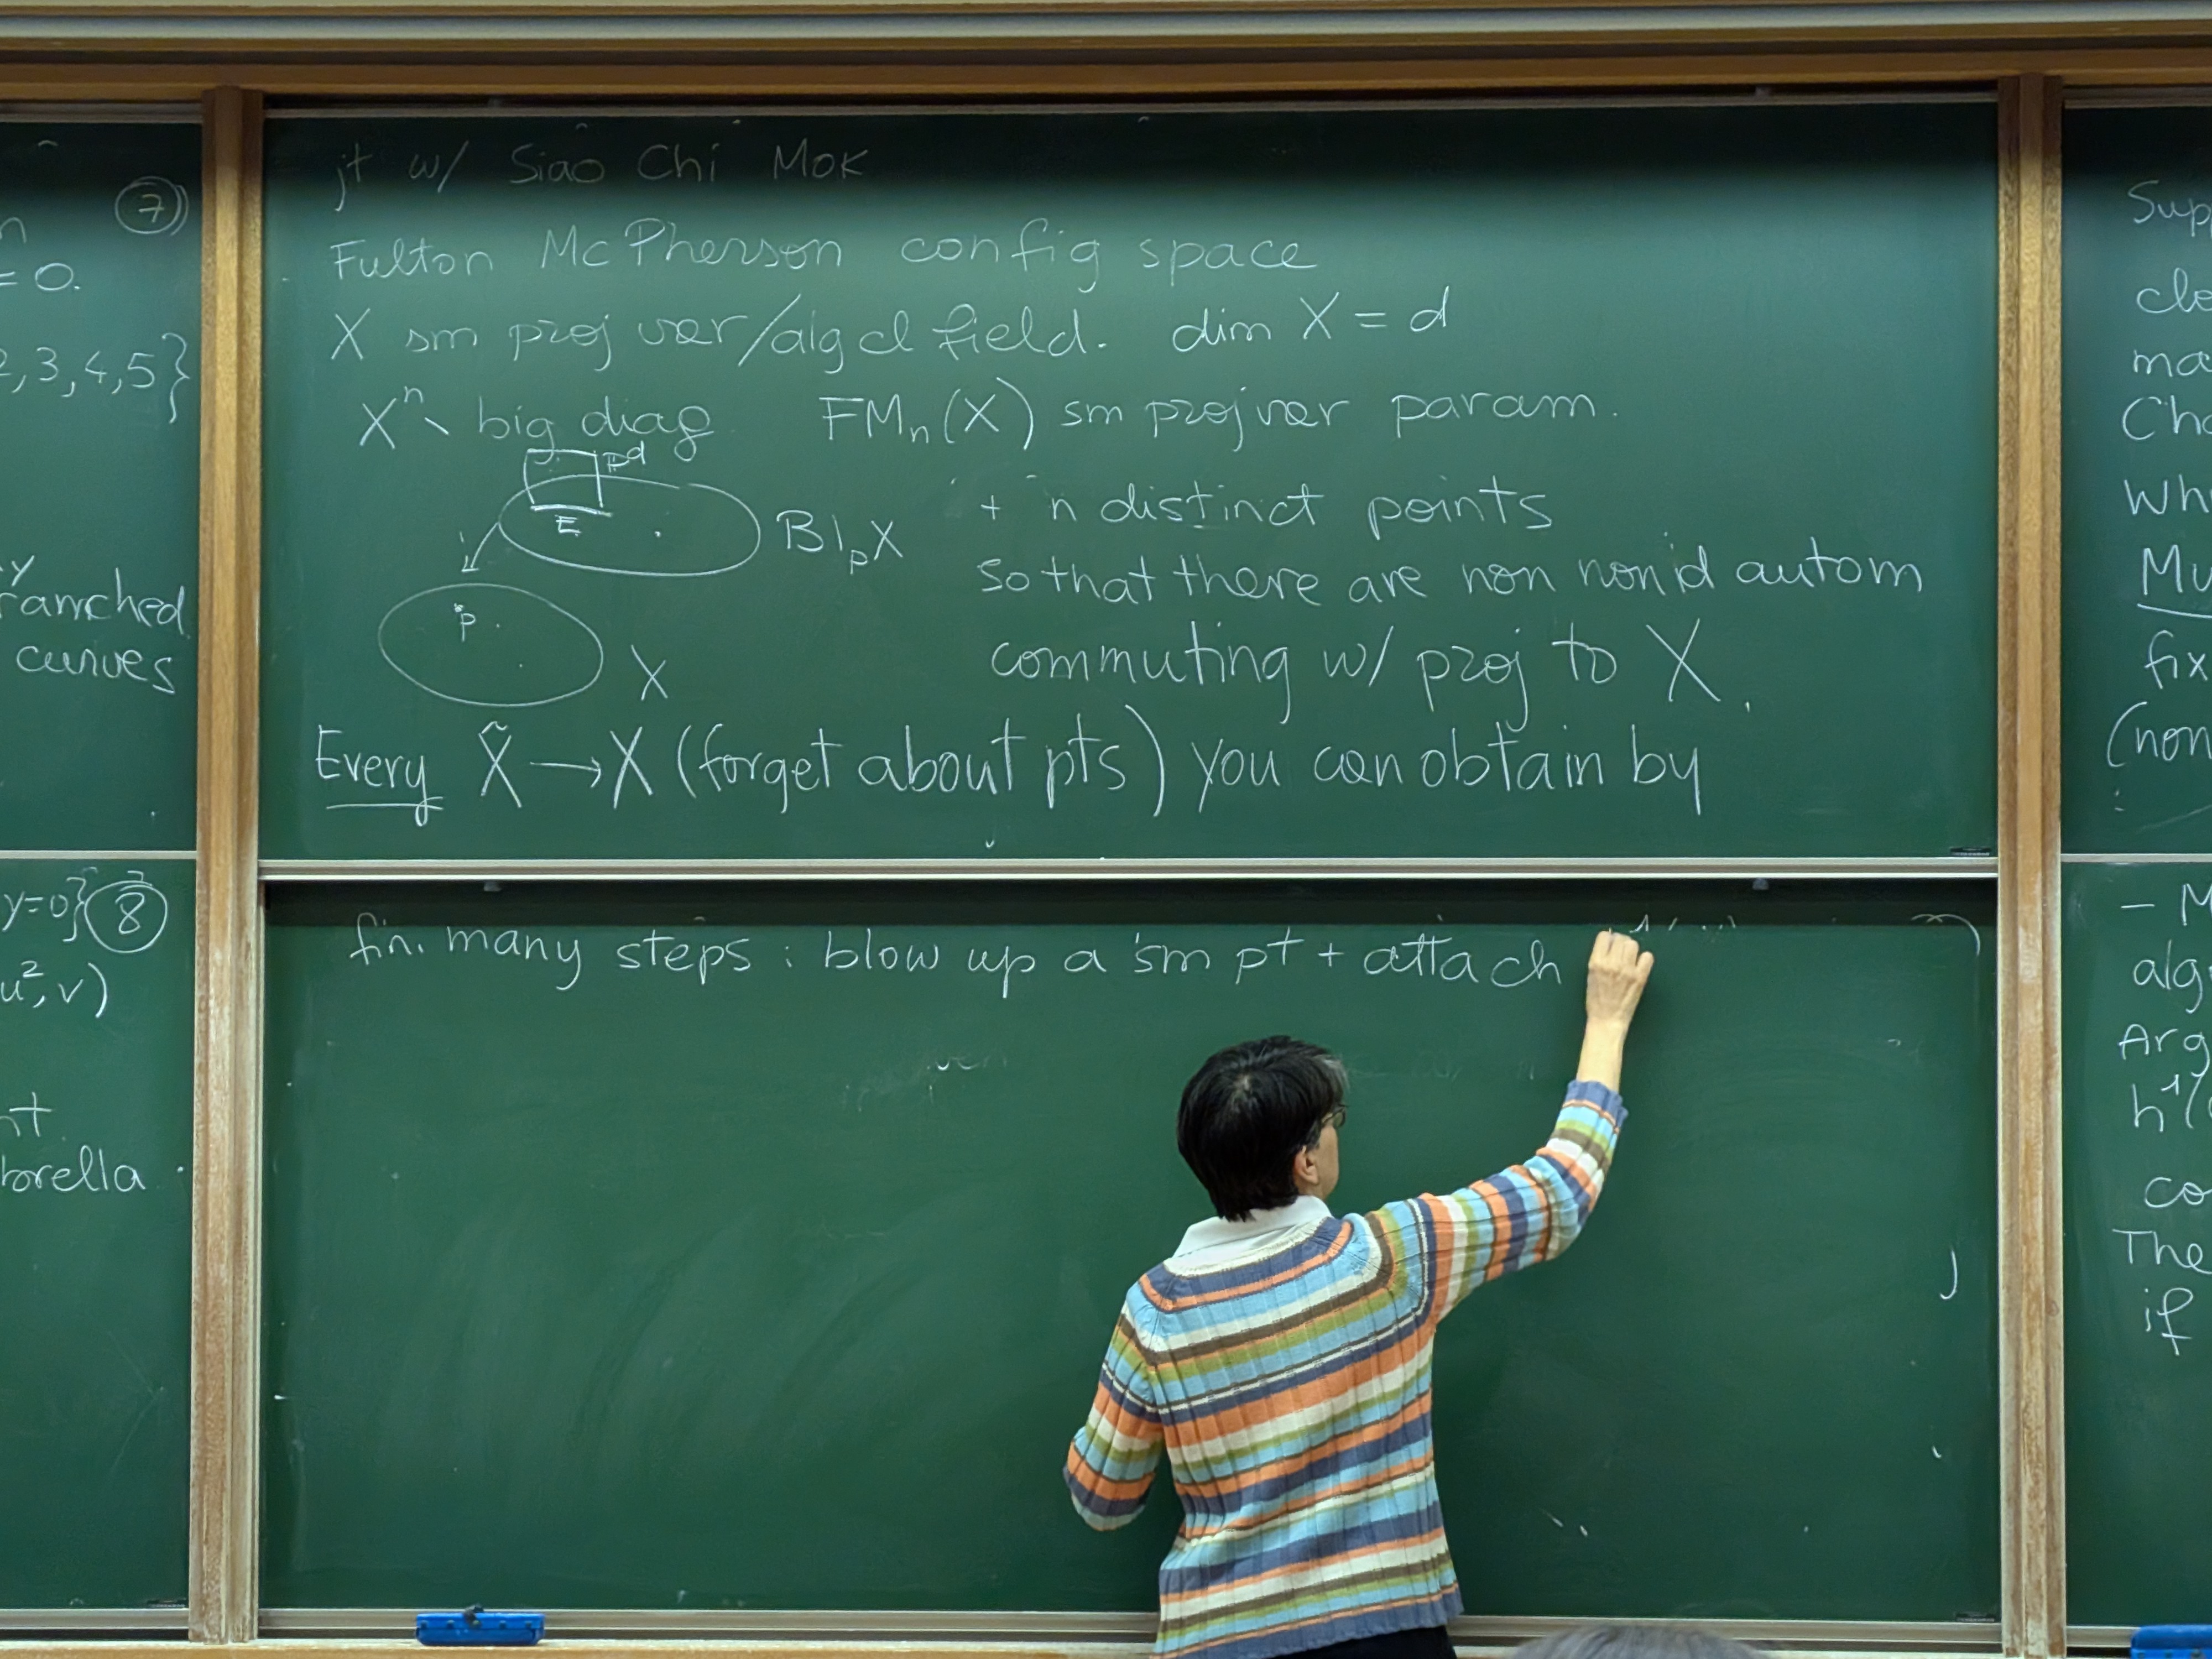 7
= 0.
2,3,4,5}
ranched
curves
y=0} 8
u², v)
jt w/ Siao Chi Mok
Fulton McPherson config space
X sm proj var/alg cl field. dim X = d
Xⁿ \ big diag FMₙ(X) sm proj var param.
Pᵈ
E
BlₚX
+ n distinct points
so that there are non nonid autom
commuting w/ proj to X.
p
X
Every X̃ → X (forget about pts) you can obtain by
fin. many steps : blow up a sm pt + attach
Sup
clo
ma
Cha
Wh
Mu
fix
(non
- M
alg
Arg
h¹(
co
The
if